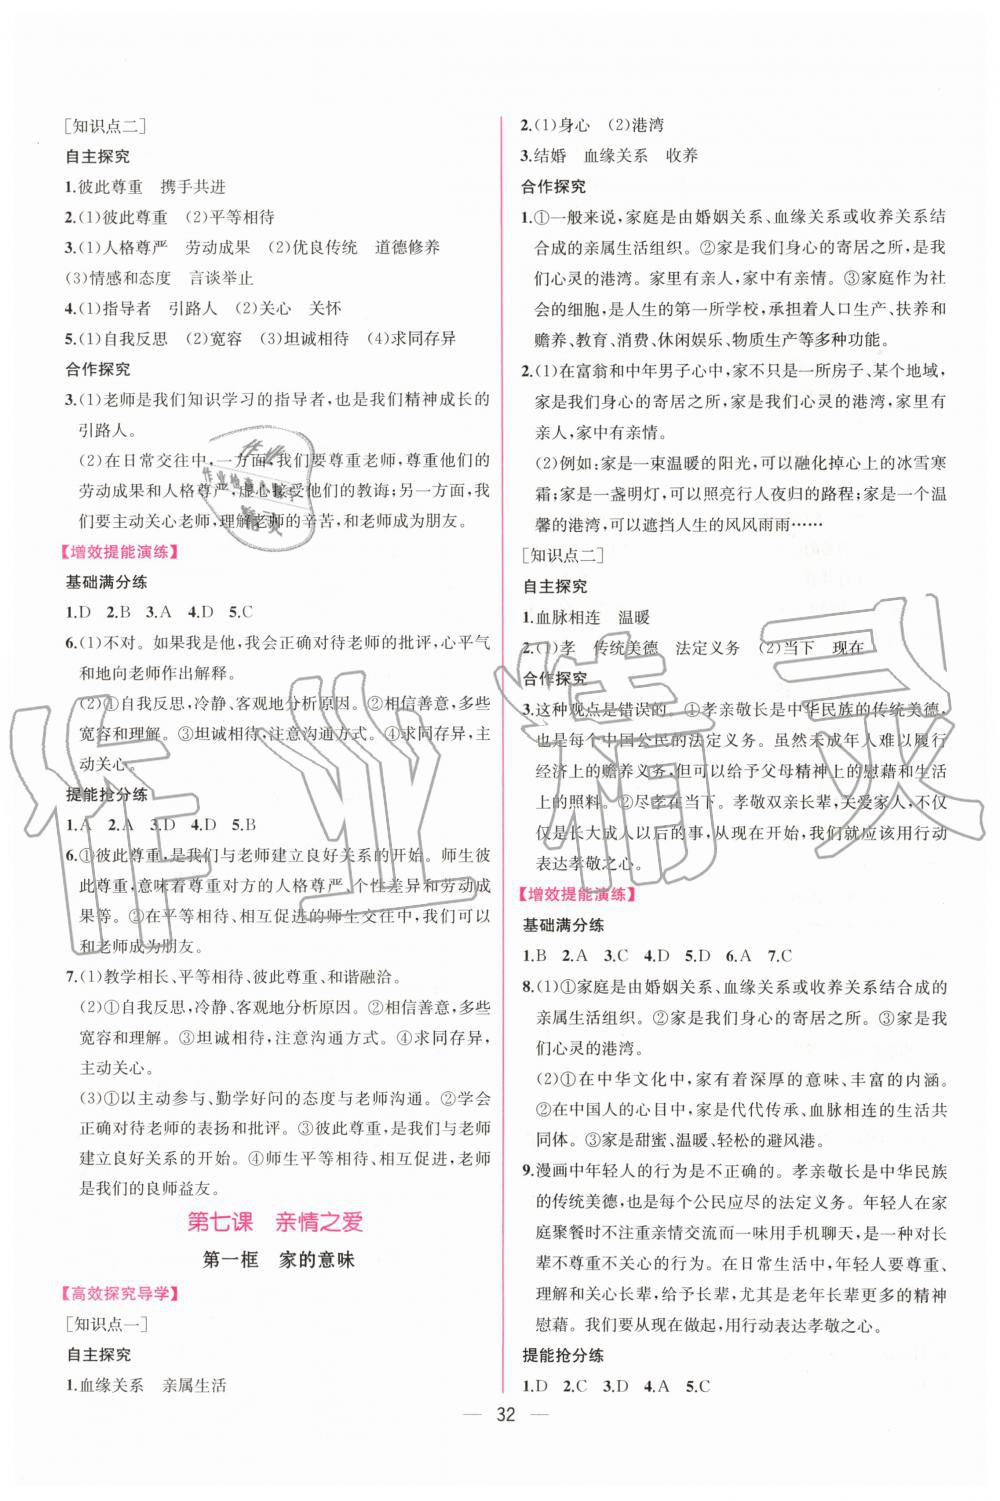 [知识点二]
自主探究
1.彼此尊重 携手共进
2.(1)彼此尊重 (2)平等相待
3.(1)人格尊严 劳动成果 (2)优良传统 道德修养
(3)情感和态度 言谈举止
4.(1)指导者 引路人 (2)关心 关怀
5.(1)自我反思 (2)宽容 (3)坦诚相待 (4)求同存异
合作探究
3.(1)老师是我们知识学习的指导者,也是我们精神成长的
引路人。
(2)在日常交往中,一方面,我们要尊重老师,尊重他们的
劳动成果和人格尊严,虚心接受他们的教诲;另一方面,我
们要主动关心老师,理解老师的辛苦,和老师成为朋友。
【增效提能演练】
基础满分练
1.D 2.B 3.A 4.D 5.C
6.(1)不对。如果我是他,我会正确对待老师的批评,心平气
和地向老师作出解释。
(2)①自我反思,冷静、客观地分析原因。②相信善意,多些
宽容和理解。③坦诚相待,注意沟通方式。④求同存异,主
动关心。
提能抢分练
1.A 2.A 3.D 4.D 5.B
6.①彼此尊重,是我们与老师建立良好关系的开始。师生彼
此尊重,意味着尊重对方的人格尊严、个性差异和劳动成
果等。②在平等相待、相互促进的师生交往中,我们可以
和老师成为朋友。
7.(1)教学相长、平等相待、彼此尊重、和谐融洽。
(2)①自我反思,冷静、客观地分析原因。②相信善意,多些
宽容和理解。③坦诚相待,注意沟通方式。④求同存异,
主动关心。
(3)①以主动参与、勤学好问的态度与老师沟通。②学会
正确对待老师的表扬和批评。③彼此尊重是我们与老师
建立良好关系的开始。④师生平等相待、相互促进,老师
是我们的良师益友。
第七课 亲情之爱
第一框 家的意味
【高效探究导学】
[知识点一]
自主探究
1.血缘关系 亲属生活
2.(1)身心 (2)港湾
3.结婚 血缘关系 收养
合作探究
1.①一般来说,家庭是由婚姻关系、血缘关系或收养关系结
合成的亲属生活组织。②家是我们身心的寄居之所,是我
们心灵的港湾。家里有亲人,家中有亲情。③家庭作为社
会的细胞,是人生的第一所学校,承担着人口生产、扶养和
赡养、教育、消费、休闲娱乐、物质生产等多种功能。
2.(1)在富翁和中年男子心中,家不只是一所房子、某个地域,
家是我们身心的寄居之所,家是我们心灵的港湾,家里有
亲人,家中有亲情。
(2)例如:家是一束温暖的阳光,可以融化掉心上的冰雪寒
霜;家是一盏明灯,可以照亮行人夜归的路程;家是一个温
馨的港湾,可以遮挡人生的风风雨雨……
[知识点二]
自主探究
1.血脉相连 温暖
2.(1)孝 传统美德 法定义务 (2)当下 现在
合作探究
3.这种观点是错误的。①孝亲敬长是中华民族的传统美德,
也是每个中国公民的法定义务。虽然未成年人难以履行
经济上的赡养义务,但可以给予父母精神上的慰藉和生活
上的照料。②尽孝在当下。孝敬双亲长辈,关爱家人,不仅
仅是长大成人以后的事,从现在开始,我们就应该用行动
表达孝敬之心。
【增效提能演练】
基础满分练
1.B 2.A 3.C 4.D 5.D 6.A 7.C
8.(1)①家庭是由婚姻关系、血缘关系或收养关系结合成的
亲属生活组织。②家是我们身心的寄居之所。③家是我
们心灵的港湾。
(2)①在中华文化中,家有着深厚的意味、丰富的内涵。
②在中国人的心目中,家是代代传承、血脉相连的生活共
同体。③家是甜蜜、温暖、轻松的避风港。
9.漫画中年轻人的行为是不正确的。孝亲敬长是中华民族
的传统美德,也是每个公民应尽的法定义务。年轻人在家
庭聚餐时不注重亲情交流而一味用手机聊天,是对长辈的
不尊重不关心的行为。在日常生活中,我们应尊敬长辈、
理解和关心长辈,给予长辈,尤其是老年长辈更多的精神
慰藉。我们要从现在做起,用行动表达孝敬之心。
提能抢分练
1.D 2.C 3.D 4.A 5.C
32
作业精灵